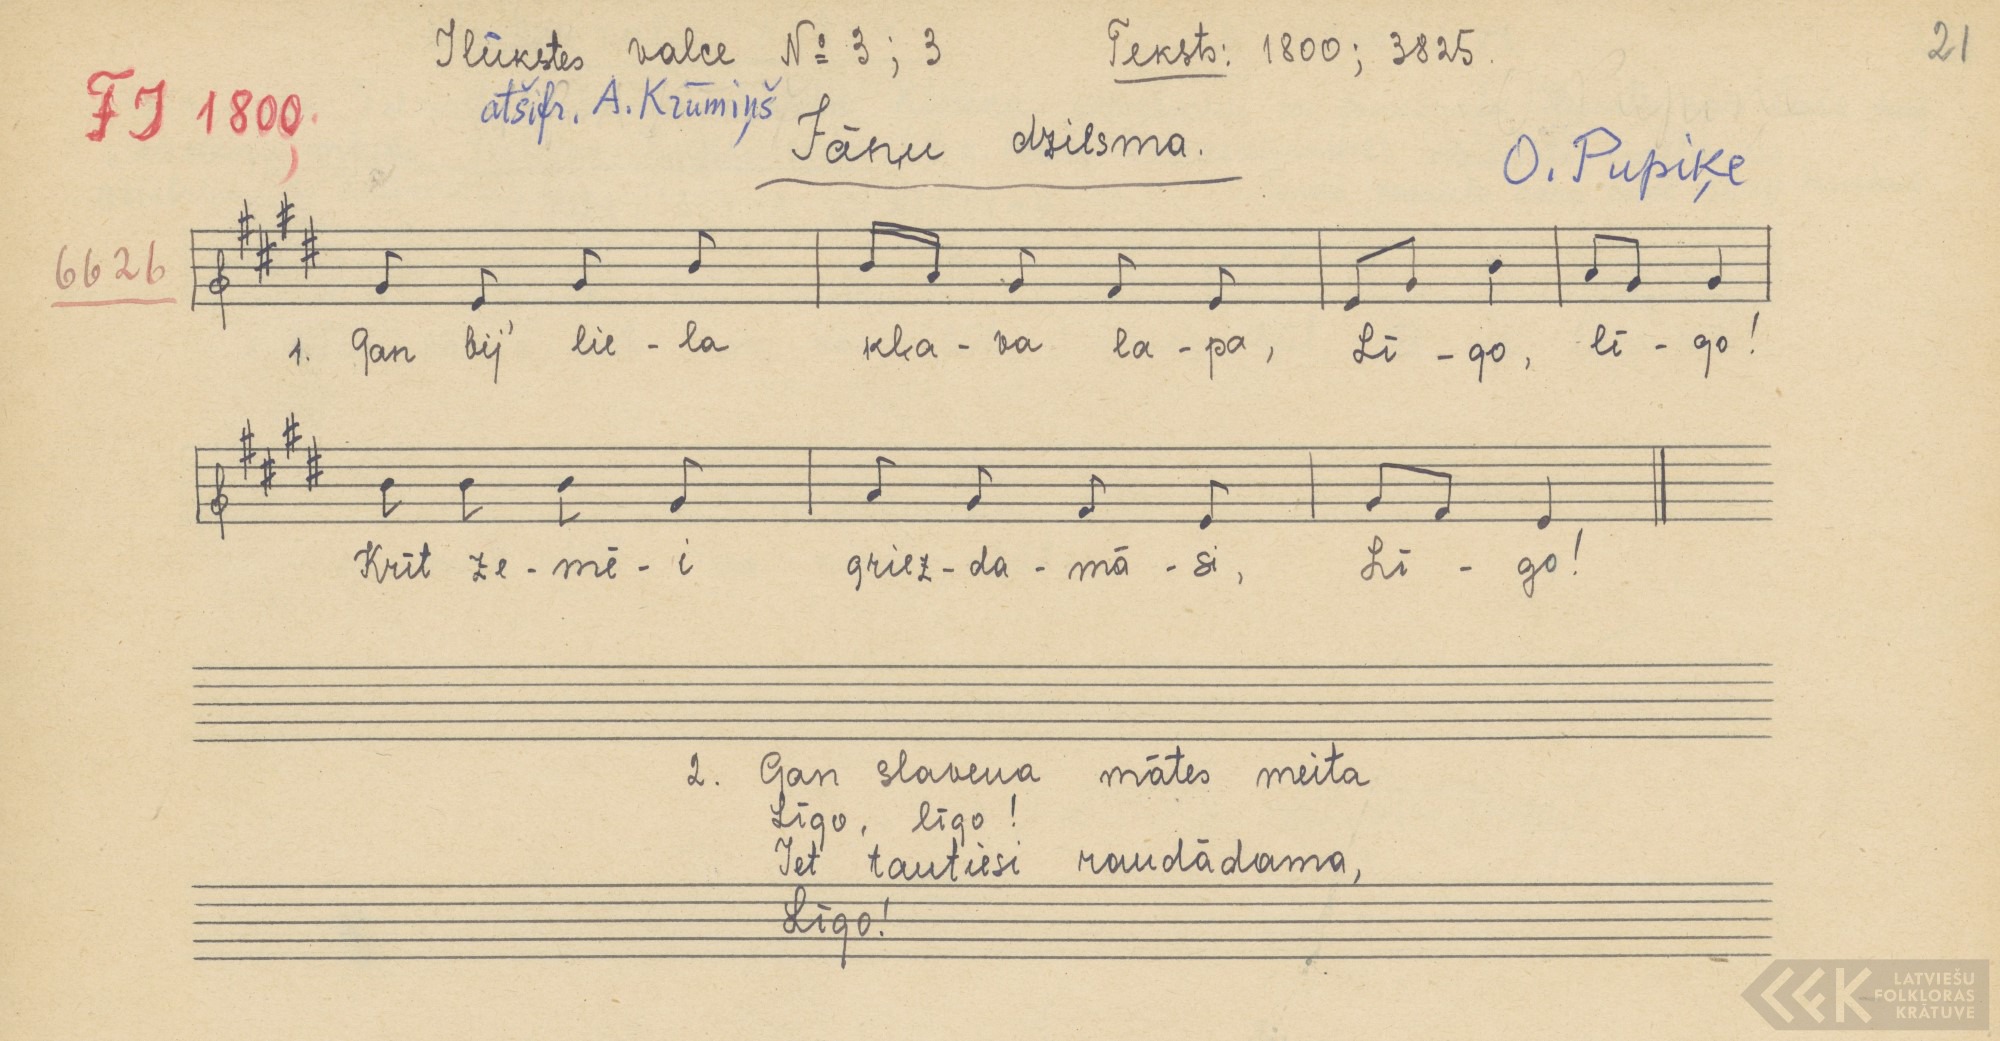 Ilūkstes valce № 3; 3 Teksts: 1800; 3825. 21
FI 1800,
atšifr. A. Krūmiņš
Jāņu dziesma.
O. Pupiķe
6626
1. Gan bij' lie - la kļa - va la - pa, Lī - go, lī - go!
Krīt ze - mē - i griez - da - mā - si, Lī - go!
2. Gan slavena mātes meita
Līgo, līgo!
Iet tautiesi raudādama,
Līgo!
LATVIEŠU
FOLKLORAS
KRĀTUVE